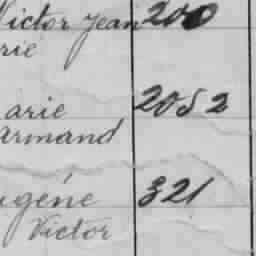 Victor Jean 200
rie
arie 2052
armand
ugéne 321
Victor